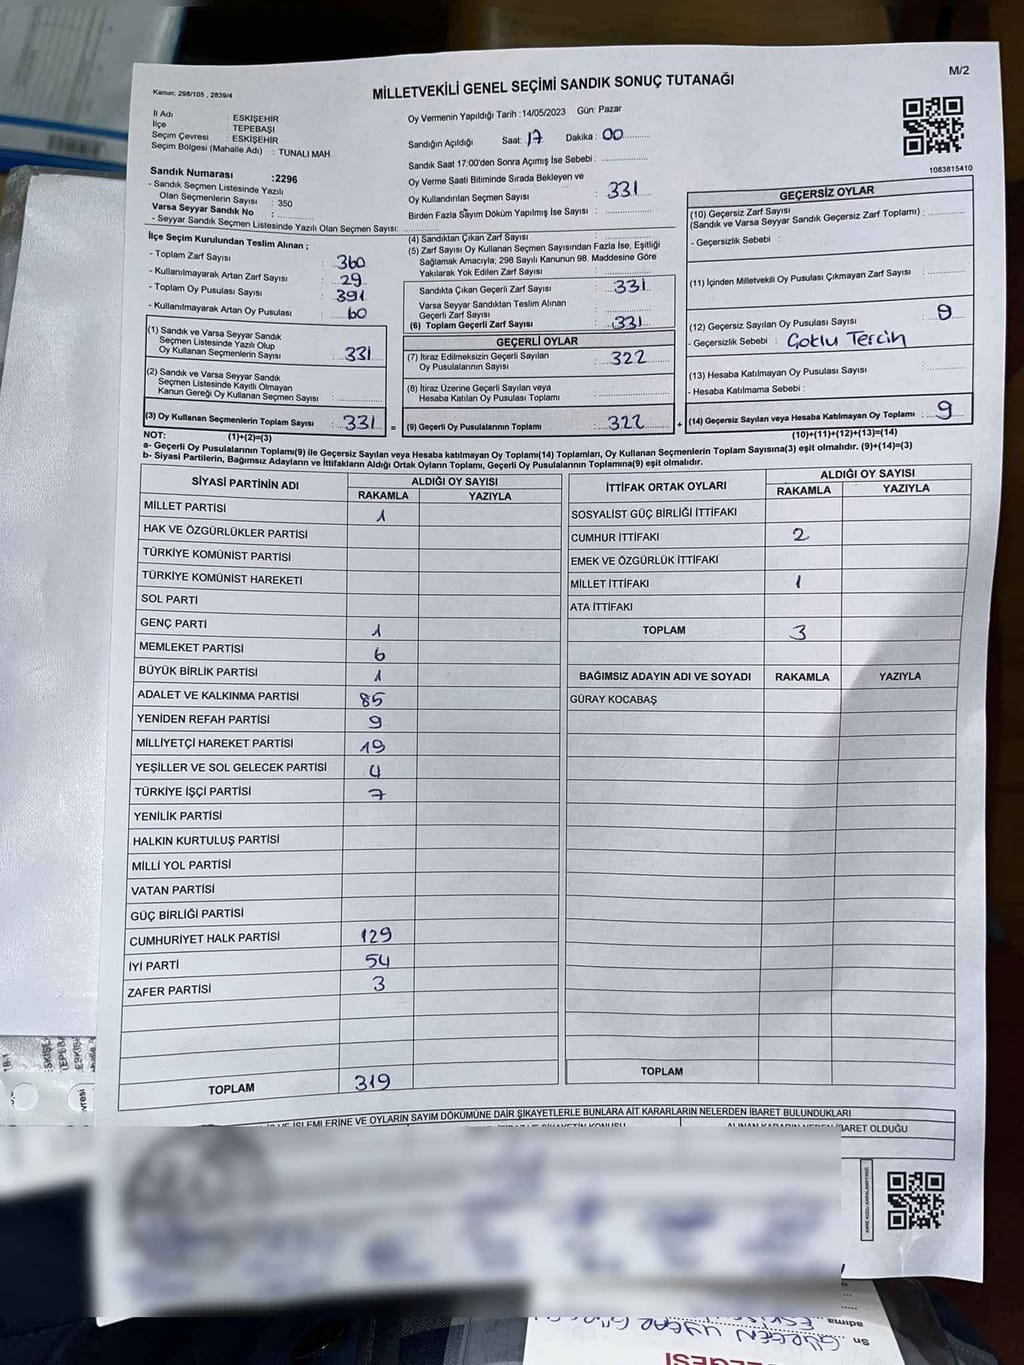 M/2
Kanun: 298/105 , 2839/4
MİLLETVEKİLİ GENEL SEÇİMİ SANDIK SONUÇ TUTANAĞI
İl Adı : ESKİŞEHİR
İlçe : TEPEBAŞI
Seçim Çevresi : ESKİŞEHİR
Seçim Bölgesi (Mahalle Adı) : TUNALI MAH.
Sandık Numarası :2296
- Sandık Seçmen Listesinde Yazılı
Olan Seçmenlerin Sayısı : 350
Varsa Seyyar Sandık No :
- Seyyar Sandık Seçmen Listesinde Yazılı Olan Seçmen Sayısı:
Oy Vermenin Yapıldığı Tarih :14/05/2023 Gün: Pazar
Sandığın Açıldığı Saat: 17 Dakika : 00
Sandık Saat 17:00'den Sonra Açımış İse Sebebi :
Oy Verme Saati Bitiminde Sırada Bekleyen ve
Oy Kullandırılan Seçmen Sayısı : 331
Birden Fazla Sayım Döküm Yapılmış İse Sayısı :
1083815410
İlçe Seçim Kurulundan Teslim Alınan ;
- Toplam Zarf Sayısı : 360
- Kullanılmayarak Artan Zarf Sayısı : 29
- Toplam Oy Pusulası Sayısı : 391
- Kullanılmayarak Artan Oy Pusulası : 60
(1) Sandık ve Varsa Seyyar Sandık
Seçmen Listesinde Yazılı Olup
Oy Kullanan Seçmenlerin Sayısı : 331
(2) Sandık ve Varsa Seyyar Sandık
Seçmen Listesinde Kayıtlı Olmayan
Kanun Gereği Oy Kullanan Seçmen Sayısı :
(3) Oy Kullanan Seçmenlerin Toplam Sayısı : 331 =
(4) Sandıktan Çıkan Zarf Sayısı :
(5) Zarf Sayısı Oy Kullanan Seçmen Sayısından Fazla İse, Eşitliği
Sağlamak Amacıyla; 298 Sayılı Kanunun 98. Maddesine Göre
Yakılarak Yok Edilen Zarf Sayısı :
Sandıkta Çıkan Geçerli Zarf Sayısı : 331
Varsa Seyyar Sandıktan Teslim Alınan
Geçerli Zarf Sayısı :
(6) Toplam Geçerli Zarf Sayısı : 331
GEÇERLİ OYLAR
(7) İtiraz Edilmeksizin Geçerli Sayılan
Oy Pusulalarının Sayısı : 322
(8) İtiraz Üzerine Geçerli Sayılan veya
Hesaba Katılan Oy Pusulası Toplamı :
(9) Geçerli Oy Pusulalarının Toplamı : 322 +
GEÇERSİZ OYLAR
(10) Geçersiz Zarf Sayısı
(Sandık ve Varsa Seyyar Sandık Geçersiz Zarf Toplamı) :
- Geçersizlik Sebebi :
(11) İçinden Milletvekili Oy Pusulası Çıkmayan Zarf Sayısı :
(12) Geçersiz Sayılan Oy Pusulası Sayısı : 9
- Geçersizlik Sebebi : Çoklu Tercih
(13) Hesaba Katılmayan Oy Pusulası Sayısı :
- Hesaba Katılmama Sebebi :
(14) Geçersiz Sayılan veya Hesaba Katılmayan Oy Toplamı : 9
NOT: (1)+(2)=(3) (10)+(11)+(12)+(13)=(14)
a- Geçerli Oy Pusulalarının Toplamı(9) ile Geçersiz Sayılan veya Hesaba katılmayan Oy Toplamı(14) Toplamları, Oy Kullanan Seçmenlerin Toplam Sayısına(3) eşit olmalıdır. (9)+(14)=(3)
b- Siyasi Partilerin, Bağımsız Adayların ve İttifakların Aldığı Ortak Oyların Toplamı, Geçerli Oy Pusulalarının Toplamına(9) eşit olmalıdır.
SİYASİ PARTİNİN ADI ALDIĞI OY SAYISI
RAKAMLA YAZIYLA
MİLLET PARTİSİ 1
HAK VE ÖZGÜRLÜKLER PARTİSİ
TÜRKİYE KOMÜNİST PARTİSİ
TÜRKİYE KOMÜNİST HAREKETİ
SOL PARTİ
GENÇ PARTİ 1
MEMLEKET PARTİSİ 6
BÜYÜK BİRLİK PARTİSİ 1
ADALET VE KALKINMA PARTİSİ 85
YENİDEN REFAH PARTİSİ 9
MİLLİYETÇİ HAREKET PARTİSİ 19
YEŞİLLER VE SOL GELECEK PARTİSİ 4
TÜRKİYE İŞÇİ PARTİSİ 7
YENİLİK PARTİSİ
HALKIN KURTULUŞ PARTİSİ
MİLLİ YOL PARTİSİ
VATAN PARTİSİ
GÜÇ BİRLİĞİ PARTİSİ
CUMHURİYET HALK PARTİSİ 129
İYİ PARTİ 54
ZAFER PARTİSİ 3
TOPLAM 319
İTTİFAK ORTAK OYLARI ALDIĞI OY SAYISI
RAKAMLA YAZIYLA
SOSYALİST GÜÇ BİRLİĞİ İTTİFAKI
CUMHUR İTTİFAKI 2
EMEK VE ÖZGÜRLÜK İTTİFAKI
MİLLET İTTİFAKI 1
ATA İTTİFAKI
TOPLAM 3
BAĞIMSIZ ADAYIN ADI VE SOYADI RAKAMLA YAZIYLA
GÜRAY KOCABAŞ
TOPLAM
İŞLEMLERİNE VE OYLARIN SAYIM DÖKÜMÜNE DAİR ŞİKAYETLERLE BUNLARA AİT KARARLARIN NELERDEN İBARET BULUNDUKLARI
İBARET OLDUĞU